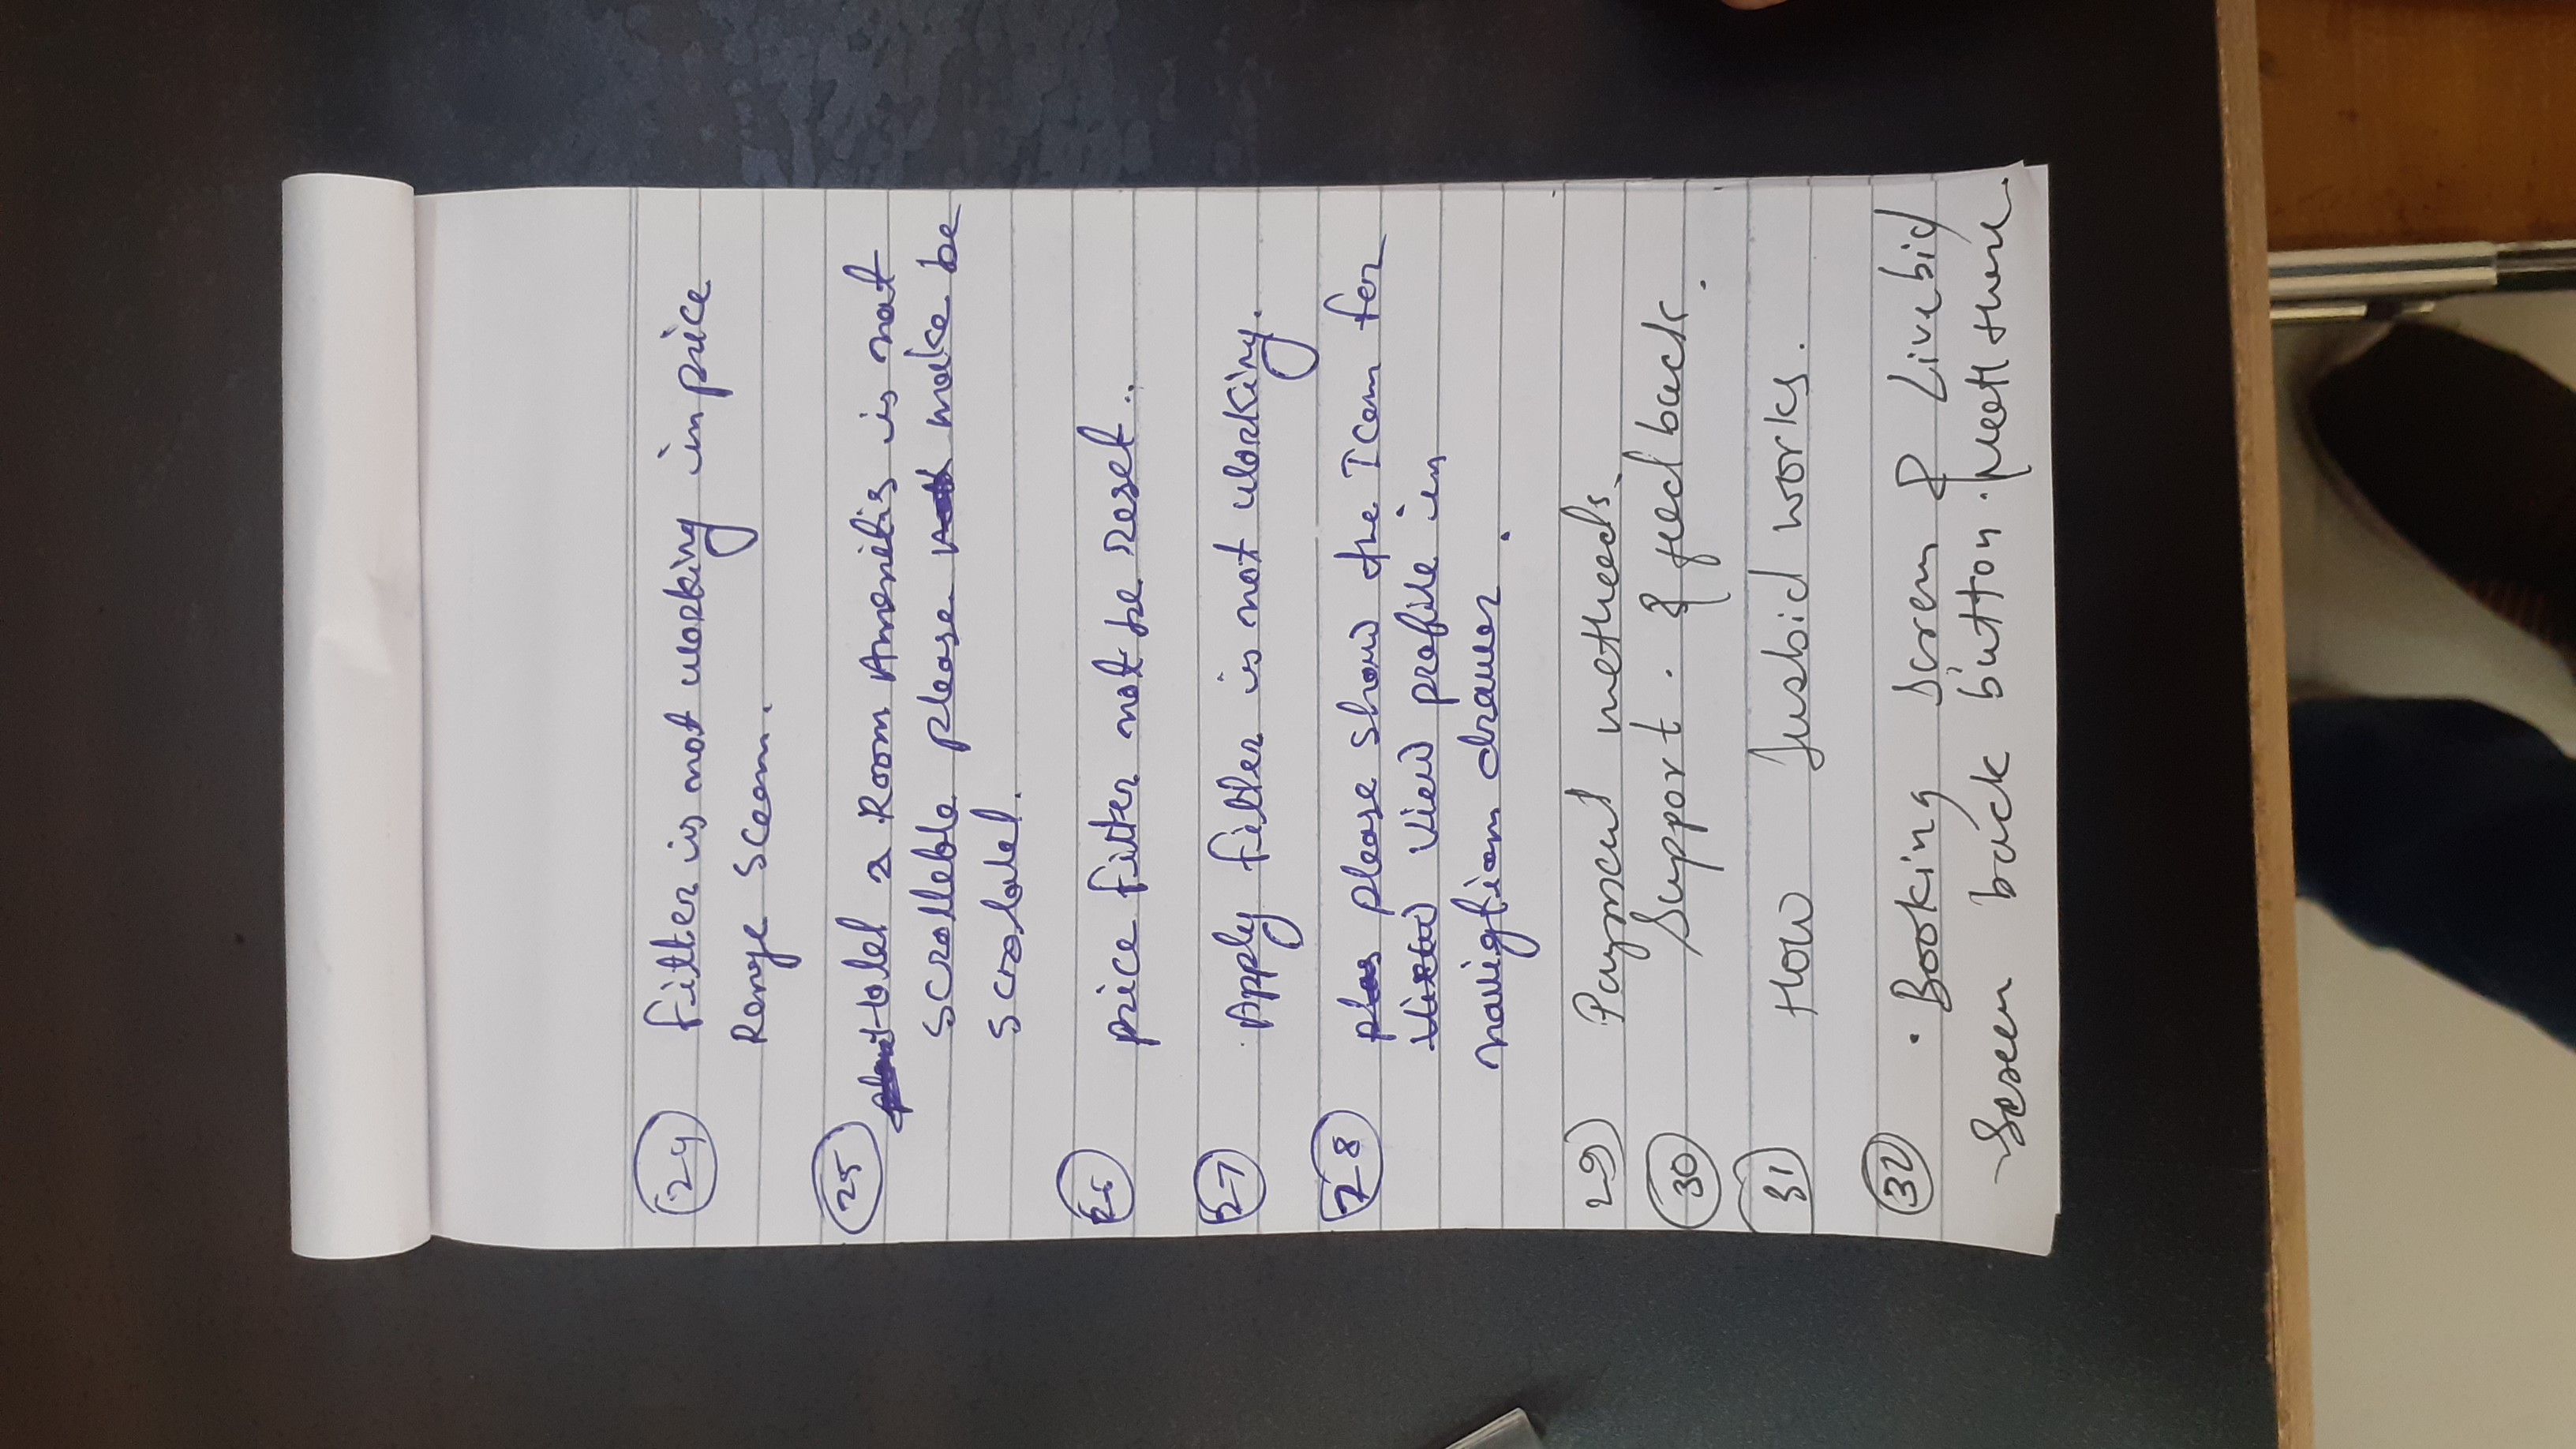 24 Filter is not working in price
Range Sceen.
25 Hotel & Room Amenitis is not
scrolleble please make be
scrolalel.
26 price filter not be reset..
27 Apply filter is not working.
28 please show the Icon for
View profile in
navigtion drawer.
29) Payment metheods.
30 Support. & feedback.
31 How Jusbid works.
32 • Booking Screen & Live bid
Screen back button. there.